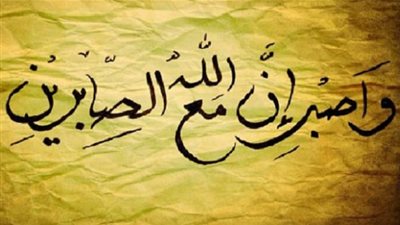 وَاصْبِر إِنَّ مَعَ اللّٰهُ الصَّابِرِينِ